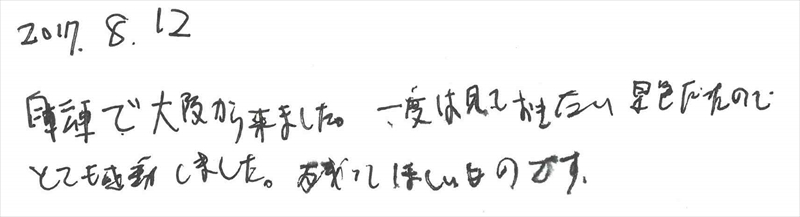 2017. 8. 12
車で大阪から来ました。一度は見ておきたい景色だたので
とても感動しました。残ってほしいものです.